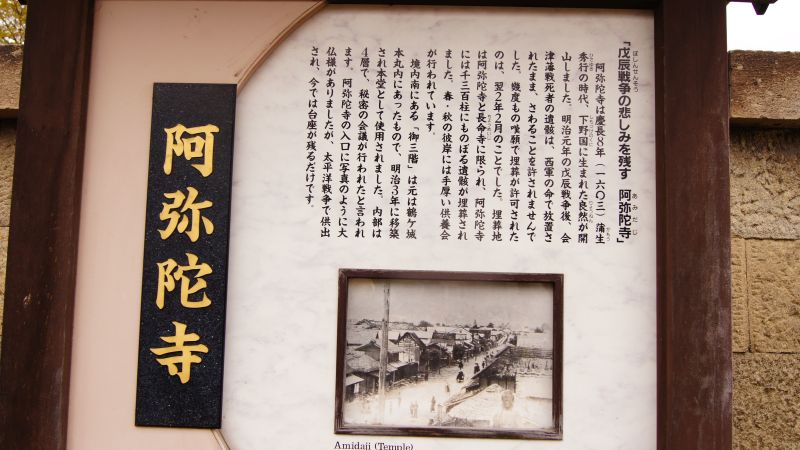 「戊辰戦争の悲しみを残す　阿弥陀寺」
阿弥陀寺は慶長8年（一六〇三）蒲生
秀行の時代、下野国に生まれた良然が開
山しました。明治元年の戊辰戦争後、会
津藩戦死者の遺骸は、西軍の命で放置さ
れたまま、さわることを許されませんで
した。幾度もの嘆願で埋葬が許可された
のは、翌2年2月のことでした。埋葬地
は阿弥陀寺と長命寺に限られ、阿弥陀寺
には千三百柱にものぼる遺骸が埋葬され
ました。春・秋の彼岸には手厚い供養会
が行われています。
境内南にある「御三階」は元は鶴ヶ城
本丸内にあったもので、明治3年に移築
され本堂として使用されました。内部は
4層で、秘密の会議が行われたと言われ
ます。阿弥陀寺の入口に写真のように大
仏様がありましたが、太平洋戦争で供出
され、今では台座が残るだけです。
阿弥陀寺
Amidaji (Temple)